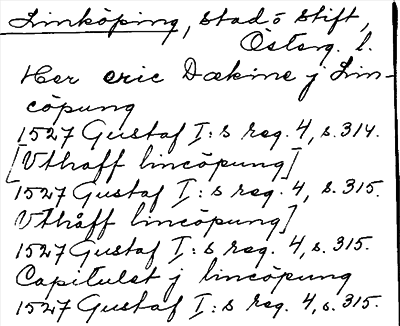 Linköping, stad o stift,
Österg. l.
Her eric Dækine j Lin-
cöpung
1527 Gustaf I:s reg. 4, s. 314.
[Vthaff lincöpung]
1527 Gustaf I:s reg. 4, s. 315.
Vthåff lincöpung]
1527 Gustaf I:s reg. 4, s. 315.
Capitulet j lincöpung
1527 Gustaf I:s reg. 4, s. 315.